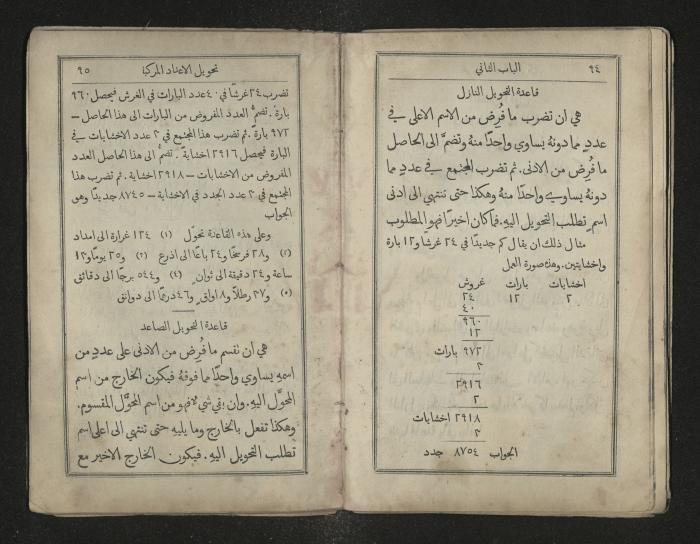 ٩٤
الباب الثاني
قاعدة التحويل النازل
هي ان تضرب ما فُرِض من الاسم الاعلى في
عددٍ مما دونهُ يساوي واحدًا منهُ وتضمَّ الى الحاصل
ما فُرِض من الادنى. ثم تضرب المجتمع في عددٍ مما
دونهُ يساوي واحدًا منهُ وهكذا حتى تنتهي الى ادنى
اسمٍ تطلب التحويل اليهِ. فما كان اخيرًا فهو المطلوب
مثال ذلك ان يقال كم جديدًا في ٢٤ غرشا و١٢ بارة
واخشايتين. وهذه صورة العمل
اخشايات بارات غروش
٢ ١٢ ٢٤
٤٠
٩٦٠
١٢
٩٧٢ بارات
٣
٢٩١٦
٢
٢٩١٨ اخشايات
٣
الجواب ٨٧٥٤ جدد
تحويل الاعداد المركبة
٩٥
تضرب ٢٤ غرشًا في ٤٠ عدد البارات في الغرش فيحصل ٩٦٠
بارة. تضمُّ العدد المفروض من البارات الى هذا الحاصل –
٩٧٢ بارة. ثم تضرب هذا المجتمع في ٣ عدد الاخشايات في
البارة فيحصل ٢٩١٦ اخشاية. تضمُّ الى هذا الحاصل العدد
المفروض من الاخشايات – ٢٩١٨ اخشاية. ثم تضرب هذا
المجتمع في ٣ عدد الجدد في الاخشاية – ٨٧٤٥ جديدًا وهو
الجواب
وعلى هذه القاعدة تحوّل (١) ١٢٤ غرارة الى امداد
(٢) و٢٨ فرسخًا و٢٤ باعًا الى اذرع (٣) و٢٥ يومًا و١٣
ساعة و٢٤ دقيقة الى ثوانٍ (٤) و٥٤٤ برجًا الى دقائق
(٥) و٣٧ رطلًا و٨ اواقٍ و٤٦ درهمًا الى دوانق
قاعدة التحويل الصاعد
هي ان تقسم ما فُرِض من الادنى على عددٍ من
اسمهِ يساوي واحدًا مما فوقهُ فيكون الخارج من اسم
المحوَّل اليهِ. وان بقي شيء فهو من اسم المحوَّل المقسوم.
وهكذا تفعل بالخارج وما يليهِ حتى تنتهي الى اعلى اسم
تطلب التحويل اليهِ. فيكون الخارج الاخير مع